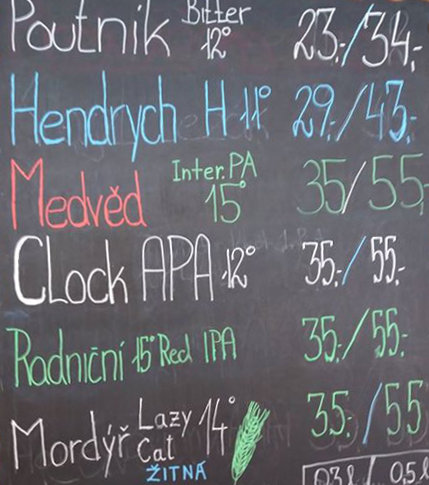 Poutník Bitter 12° 23,-/34,-
Hendrych H 11° 29,-/43,-
Medvěd Inter. PA 15° 35/55,-
CLock APA 12° 35,-/55,-
Radniční 15° Red IPA 35,-/55,-
Mordýř Lazy Cat 14° 35,-/55
ŽITNÁ
0,3 l / 0,5 l